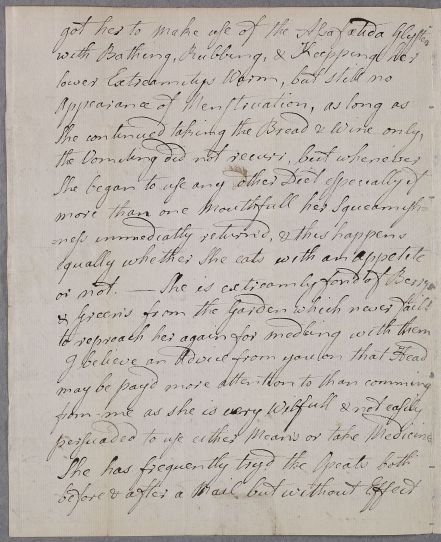 got her to make use of the Assafœtida Glyster
with Bathing, Rubbing, & Keepping her
lower Extreamitys Warm, but still no
Appearance of Menstruation, as long as
She continued taking the Bread & Wine only,
the Vomiting did not recurr, but whenever
She began to use any other Diet especially if
more than one Mouthfull her Squeamish-
-ness immediatly return'd, & this happens
Equally whether She eats with an appetite
or not. — She is extreamly fond of Berrys
& Greens from the Garden which never fails
to reproach her again for medling with them
I believe an Advice from you on that Head
may be payd more attention to than comming
from me as she is very Wilfull & not easily
persuaded to use either Means or take Medicine
She has frequently tryd the Opeats both
before & after a Meal but without Effect